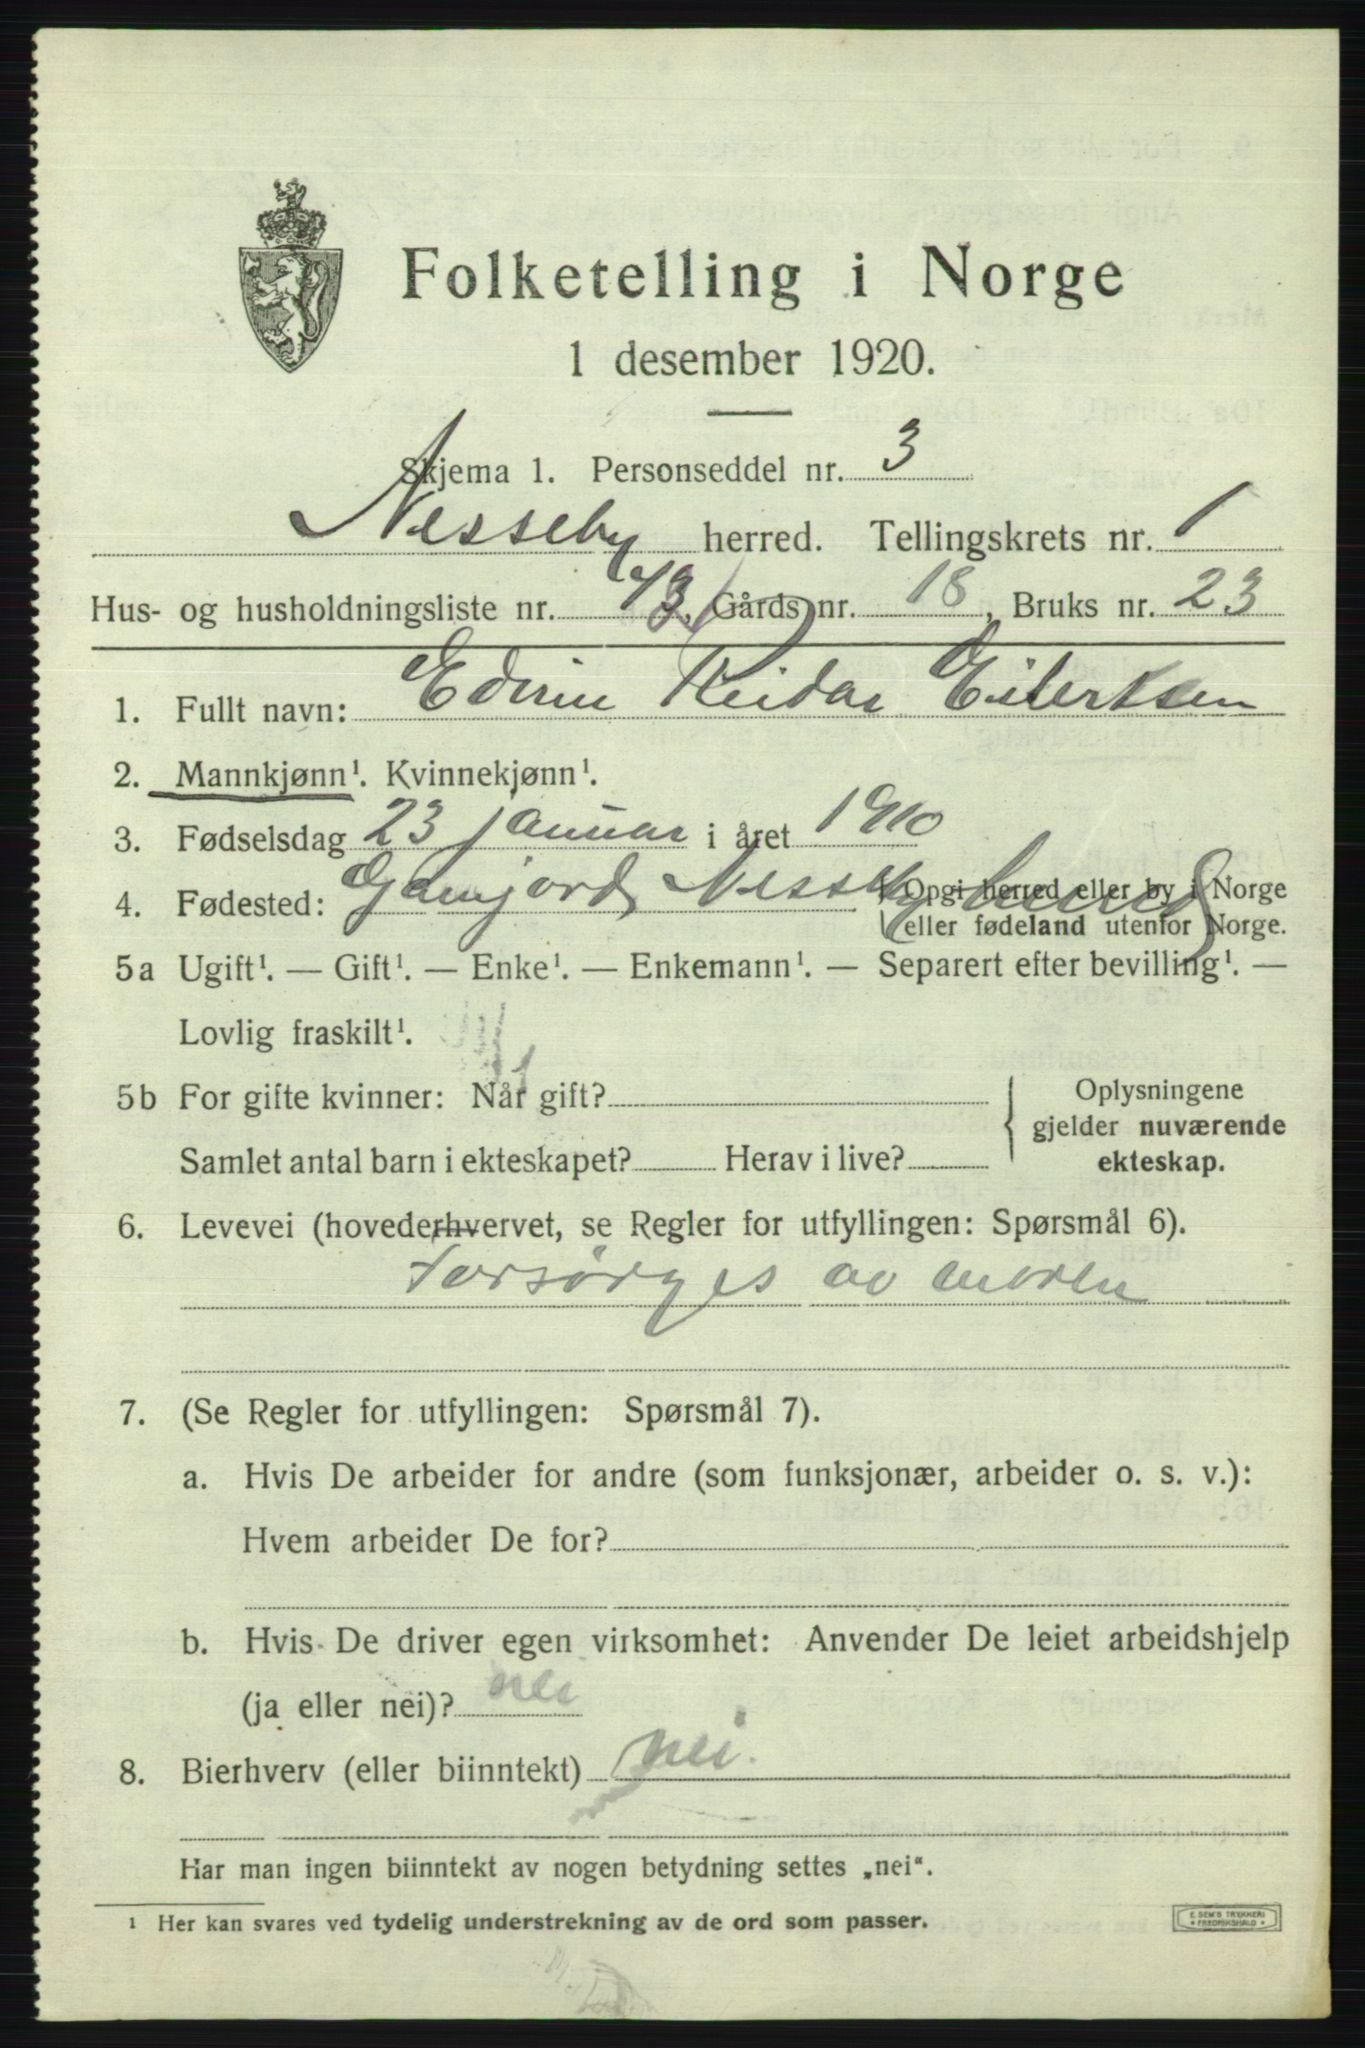 Folketelling i Norge
1 desember 1920.
Skjema 1. Personseddel nr. 3
Nesseby herred. Tellingskrets nr. 1
Hus- og husholdningsliste nr. Gårds nr. 18, Bruks nr. 23
1. Fullt navn: Edvin Reidar Eilertsen
2. Mannkjønn¹. Kvinnekjønn¹.
3. Fødselsdag 23 januar i året 1910
4. Fødested: Nesseby herred
Opgi herred eller by i Norge
eller fødeland utenfor Norge.
5a Ugift¹. — Gift¹. — Enke¹. — Enkemann¹. — Separert efter bevilling¹. —
Lovlig fraskilt¹.
5b For gifte kvinner: Når gift?
Samlet antal barn i ekteskapet? Herav i live?
Oplysningene
gjelder nuværende
ekteskap.
6. Levevei (hovederhvervet, se Regler for utfyllingen: Spørsmål 6).
Forsørges av moren
7. (Se Regler for utfyllingen: Spørsmål 7).
a. Hvis De arbeider for andre (som funksjonær, arbeider o. s. v.):
Hvem arbeider De for?
b. Hvis De driver egen virksomhet: Anvender De leiet arbeidshjelp
(ja eller nei)? nei
8. Bierhverv (eller biinntekt) nei.
Har man ingen biinntekt av nogen betydning settes „nei“.
¹ Her kan svares ved tydelig understrekning av de ord som passer.
E. SEM'S TRYKKERI
FREDRIKSHALD